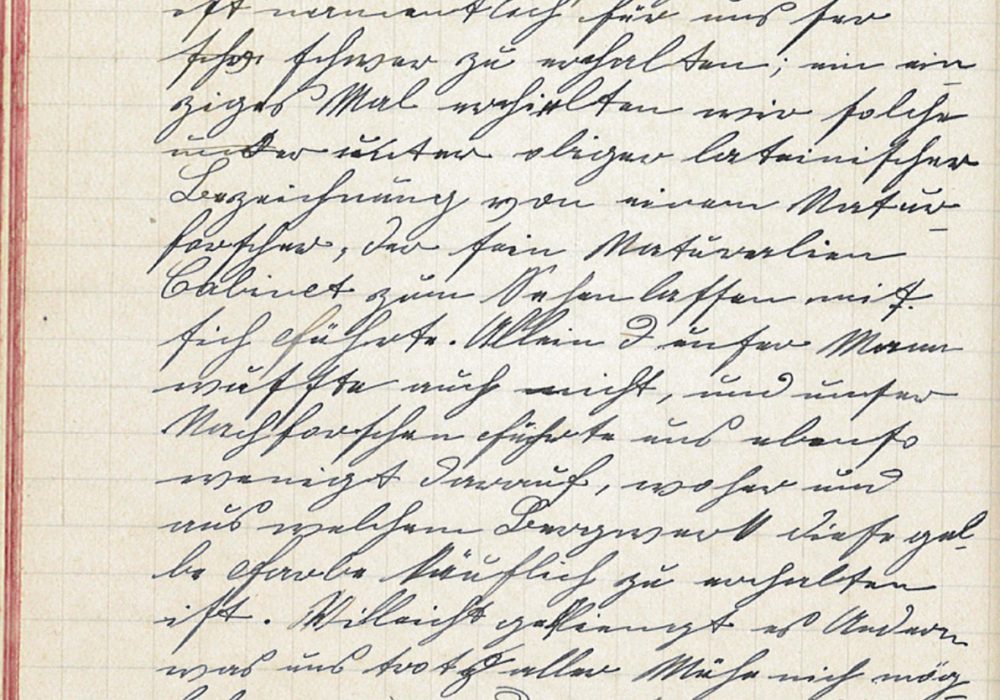 ist namentlich für uns ser
schw schwer zu erhalten; ein ein
ziges Mal erhielten wir solche
under unter obiger lateinischer
Bezeichnung von einem Natur-
forscher, der sein Naturalien
Cabinet zum Sehen lassen mit
sich führte. Allein unser Mann
wusste auch nicht, und unser
Nachforschen führte uns ebenso
wenigt darauf, woher und
aus welchem Bergwerk diese gel-
be Farbe käuflich zu erhalten
ist. Villeicht geliengt es Andern
was uns trotz aller Mühe nich mög